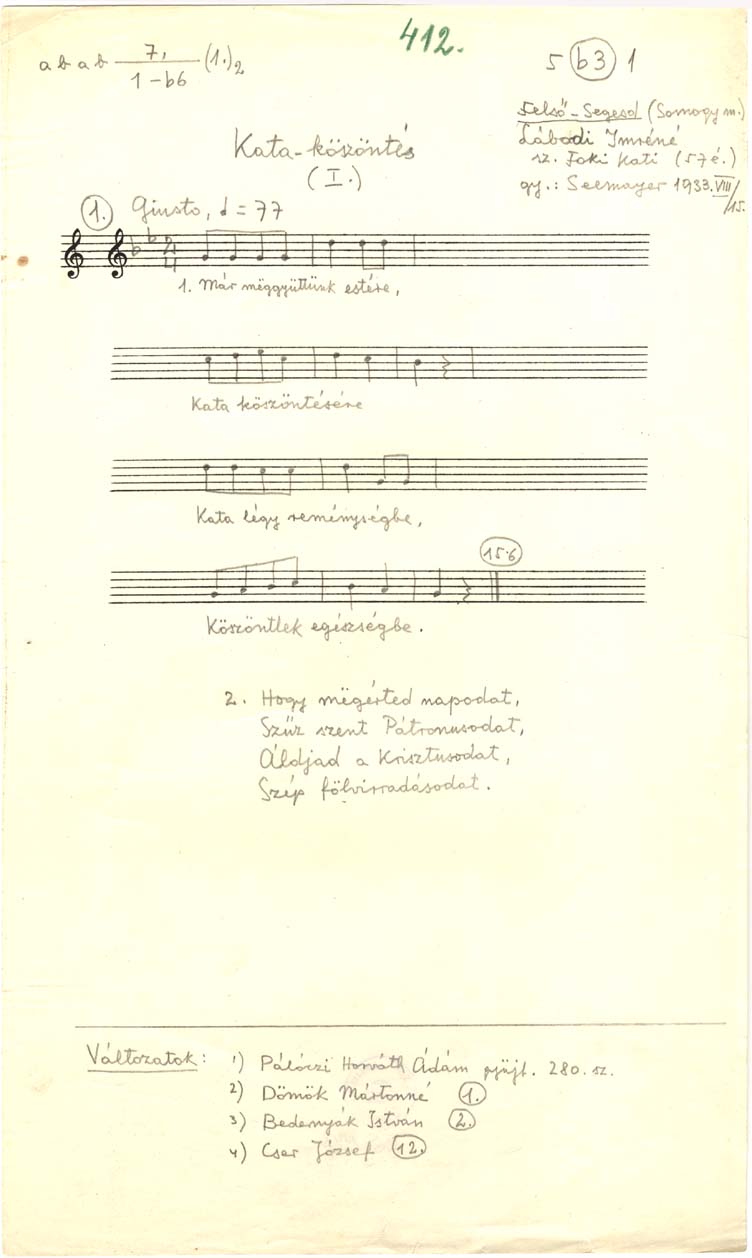 412.
a b a b 7, / 1–b6 (1.)2
5 (b3) 1
Felső-Segesd (Somogy m.)
Lábodi Imréné
sz. Foki Kati (57 é.)
gy.: Seemayer 1933.VIII/15.
Kata-köszöntés
(I.)
1. Giusto, = 77
1. Már mëggyüttünk estére,
Kata köszöntésére
Kata légy reménységbe,
156
Köszöntlek egészségbe.
2. Hogy mëgérted napodat,
Szűz szent Pátronusodat,
Áldjad a Krisztusodat,
Szép fölvirradásodat.
Változatok: 1) Pálóczi Horváth Ádám gyüjt. 280. sz.
2) Dömök Mártonné 1.
3) Bedernyák István 2.
4) Cser József 12.